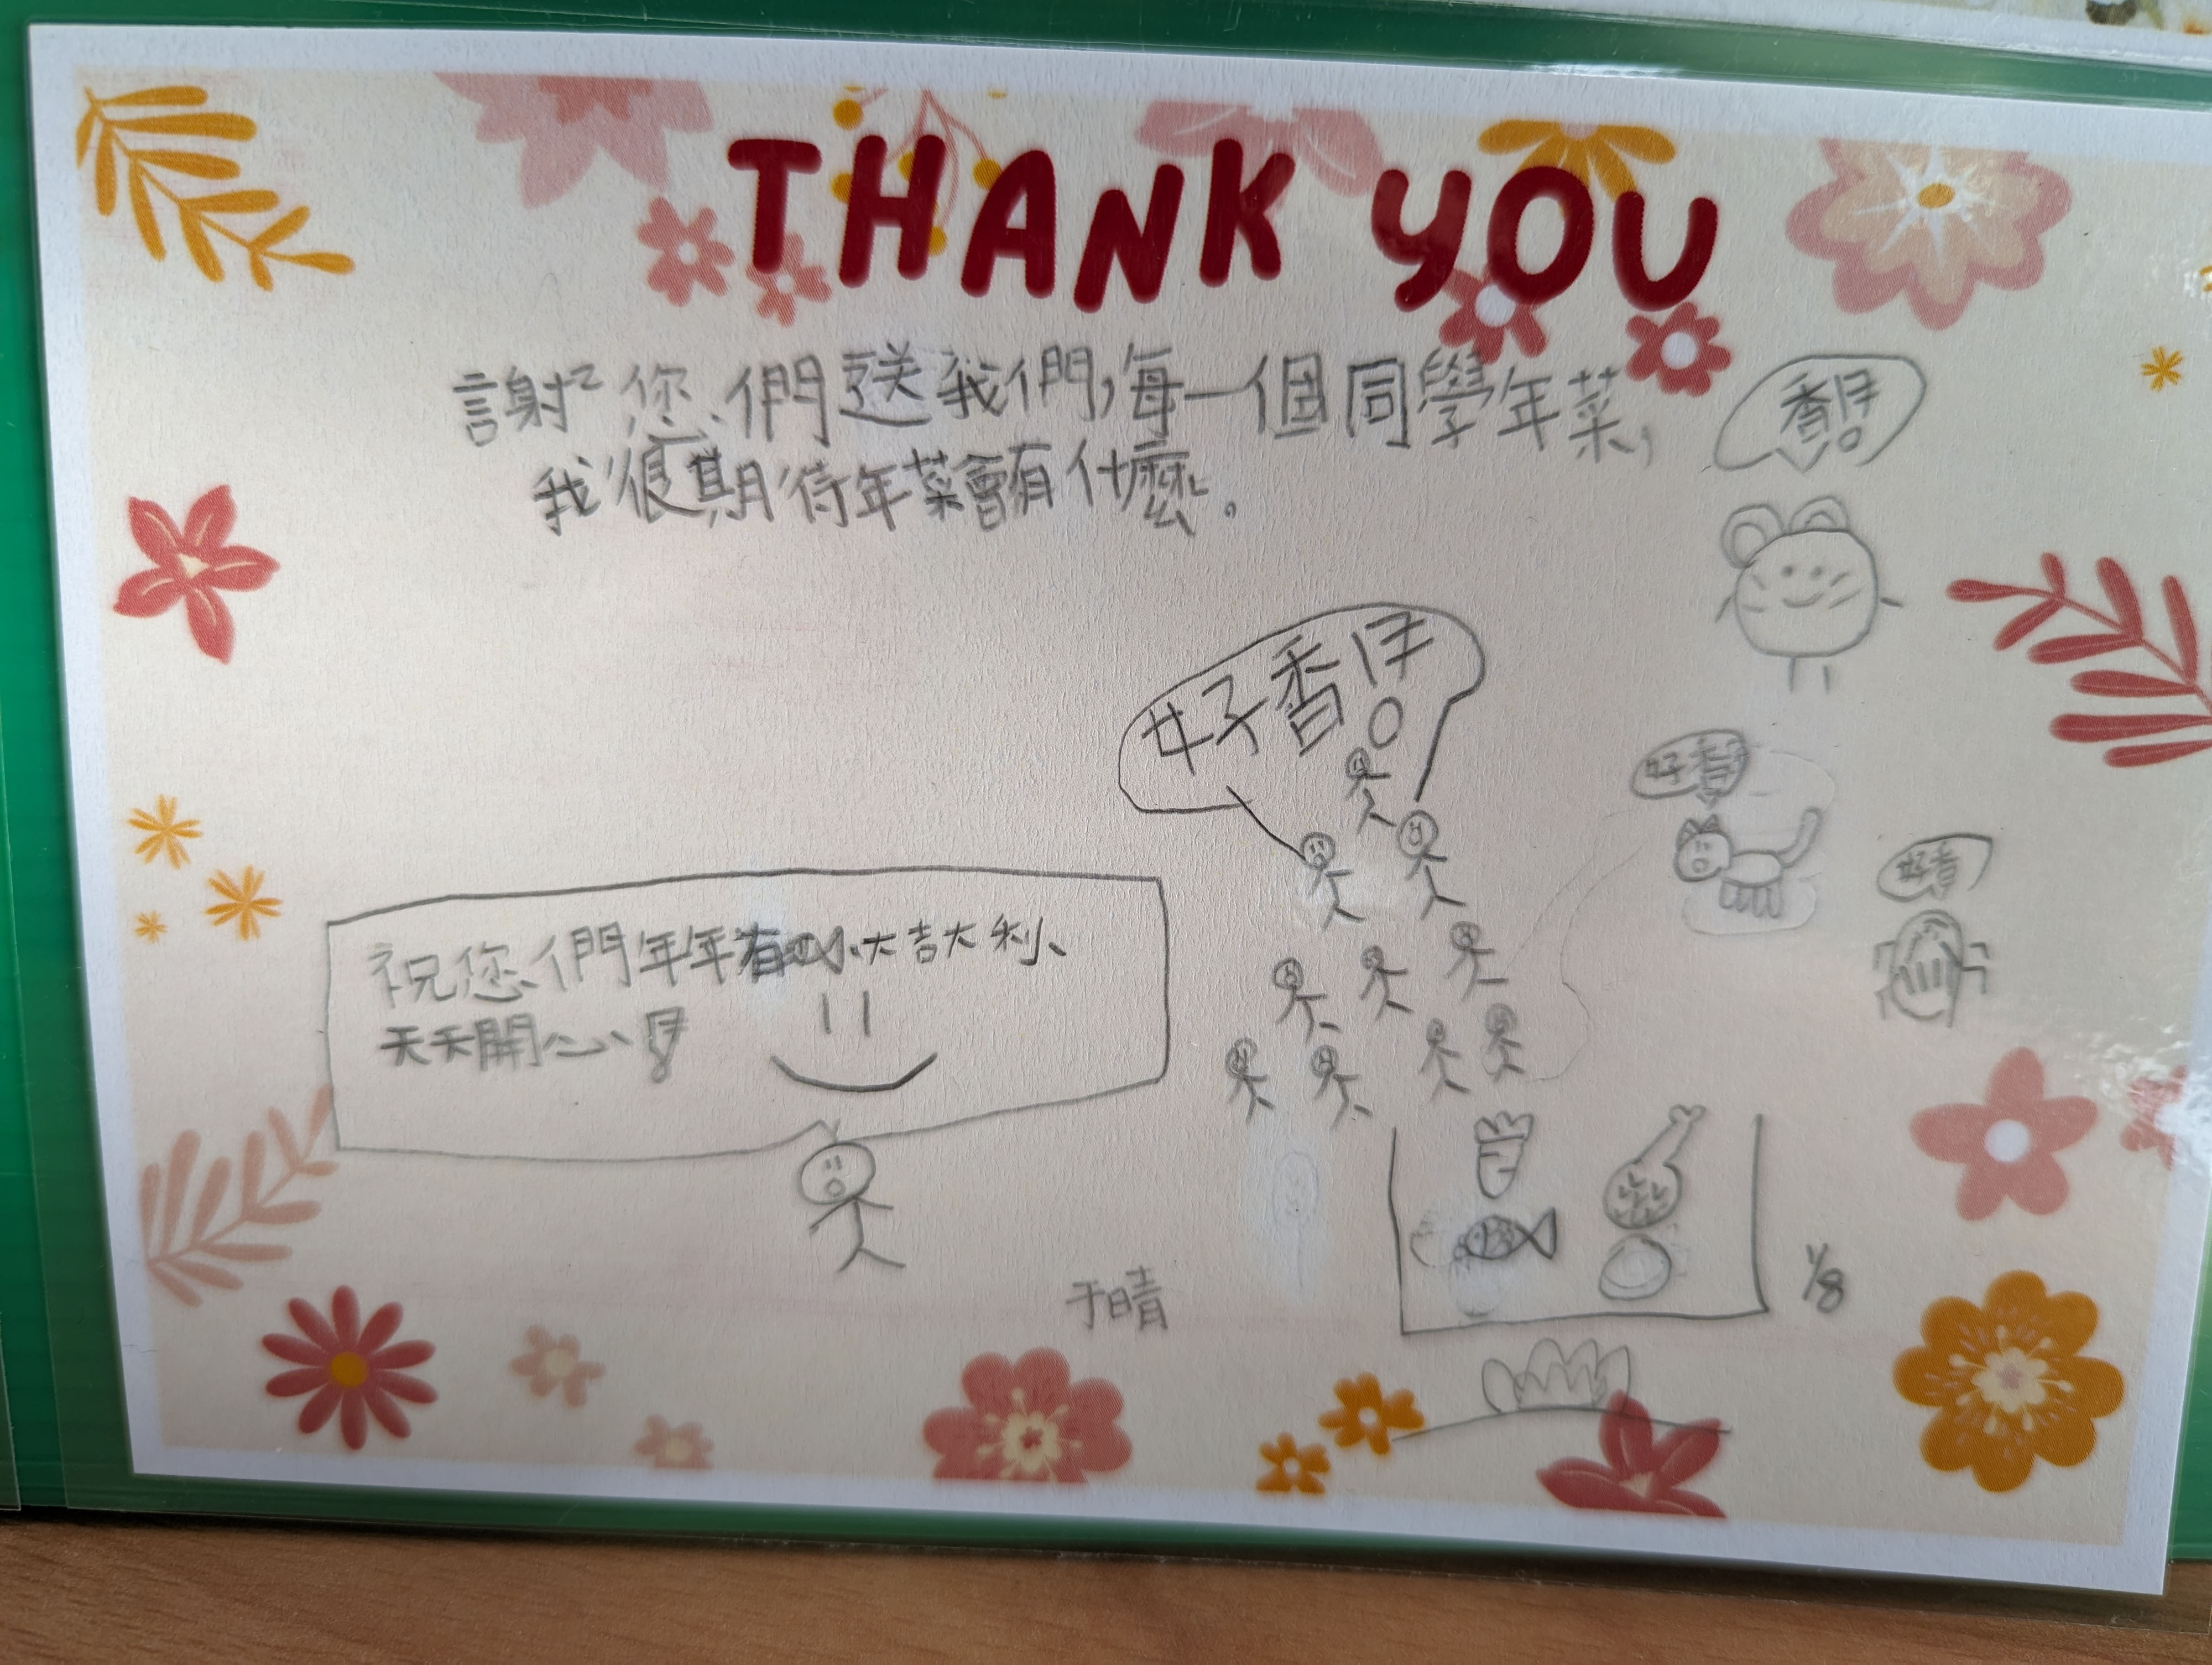 THANK YOU
謝²您們送我們,每一個同學年菜,
我很期待年菜會有什麼。
香!
好香!
好香
好香
祝您們年年有 大吉大利、
天天開心!
于晴
1/8